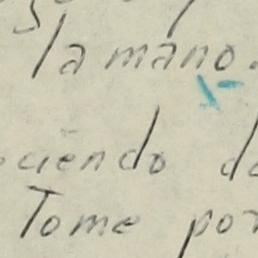 la mano.
ciendo
Tome por